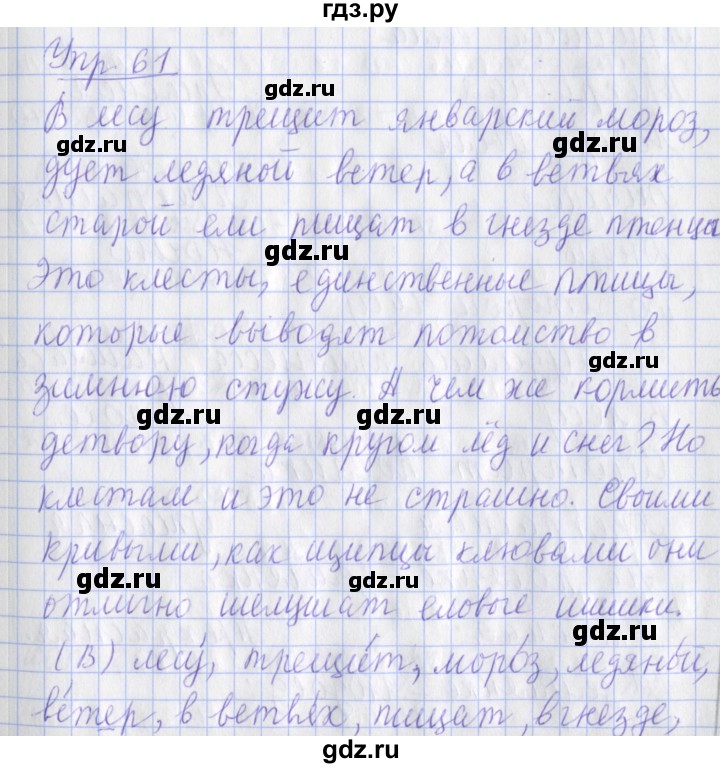 гдз.ру
Упр. 61
gdz.ru
В лесу трещит январский мороз,
gdz.ru
gdz.ru
дует ледяной ветер, а в ветвях
старой ели пищат в гнезде птенца
gdz.ru
Это клесты, единственные птицы,
которые выводят потомство в
gdz.ru
зимнюю стужу. А чем же кормить
gdz.ru
gdz.ru
детвору, когда кругом лёд и снег? Но
клестам и это не страшно. Своими
кривыми, как щипцы клювами они
gdz.ru
gdz.ru
отлично шелушат еловые шишки.
gdz.ru
(В) лесу́, трещи́т, моро́з, ледяно́й,
ве́тер, в ветвя́х, пищат, в гнезде,
gdz.ru
gdz.ru